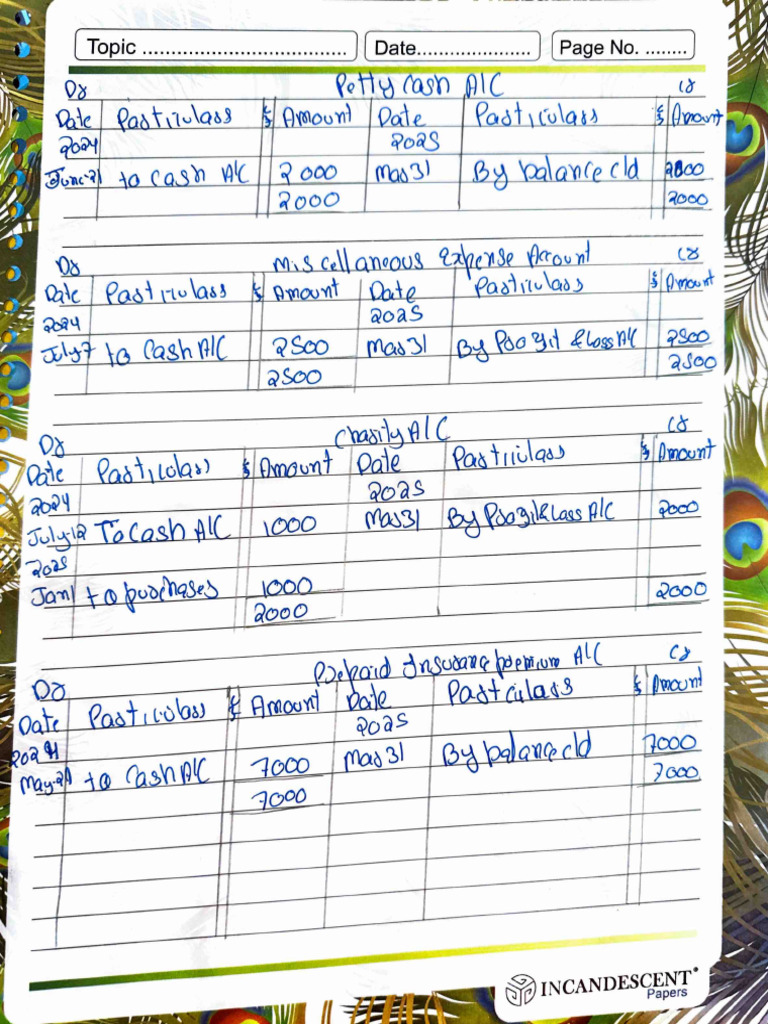 Topic .................................. Date..................... Page No. ........
Dr Petty cash A/C Cr
Date Particulars ₹ Amount Date Particulars ₹ Amount
2024 2025
June-21 to cash A/C 2000 Mar31 By balance c/d 2000
2000 2000
Dr Miscellaneous Expense Account Cr
Date Particulars ₹ Amount Date Particulars ₹ Amount
2024 2025
July7 to Cash A/C 2500 Mar31 By Profit & Loss A/C 2500
2500 2500
Dr Charity A/C Cr
Date Particulars ₹ Amount Date Particulars ₹ Amount
2024 2025
July-12 To Cash A/C 1000 Mar31 By Profit & Loss A/C 2000
2025
Jan1 to purchases 1000
2000 2000
Dr Prepaid Insurance premium A/C Cr
Date Particulars ₹ Amount Date Particulars ₹ Amount
2024 2025
to Cash A/C 7000 Mar31 By balance c/d 7000
7000 7000
INCANDESCENT
Papers